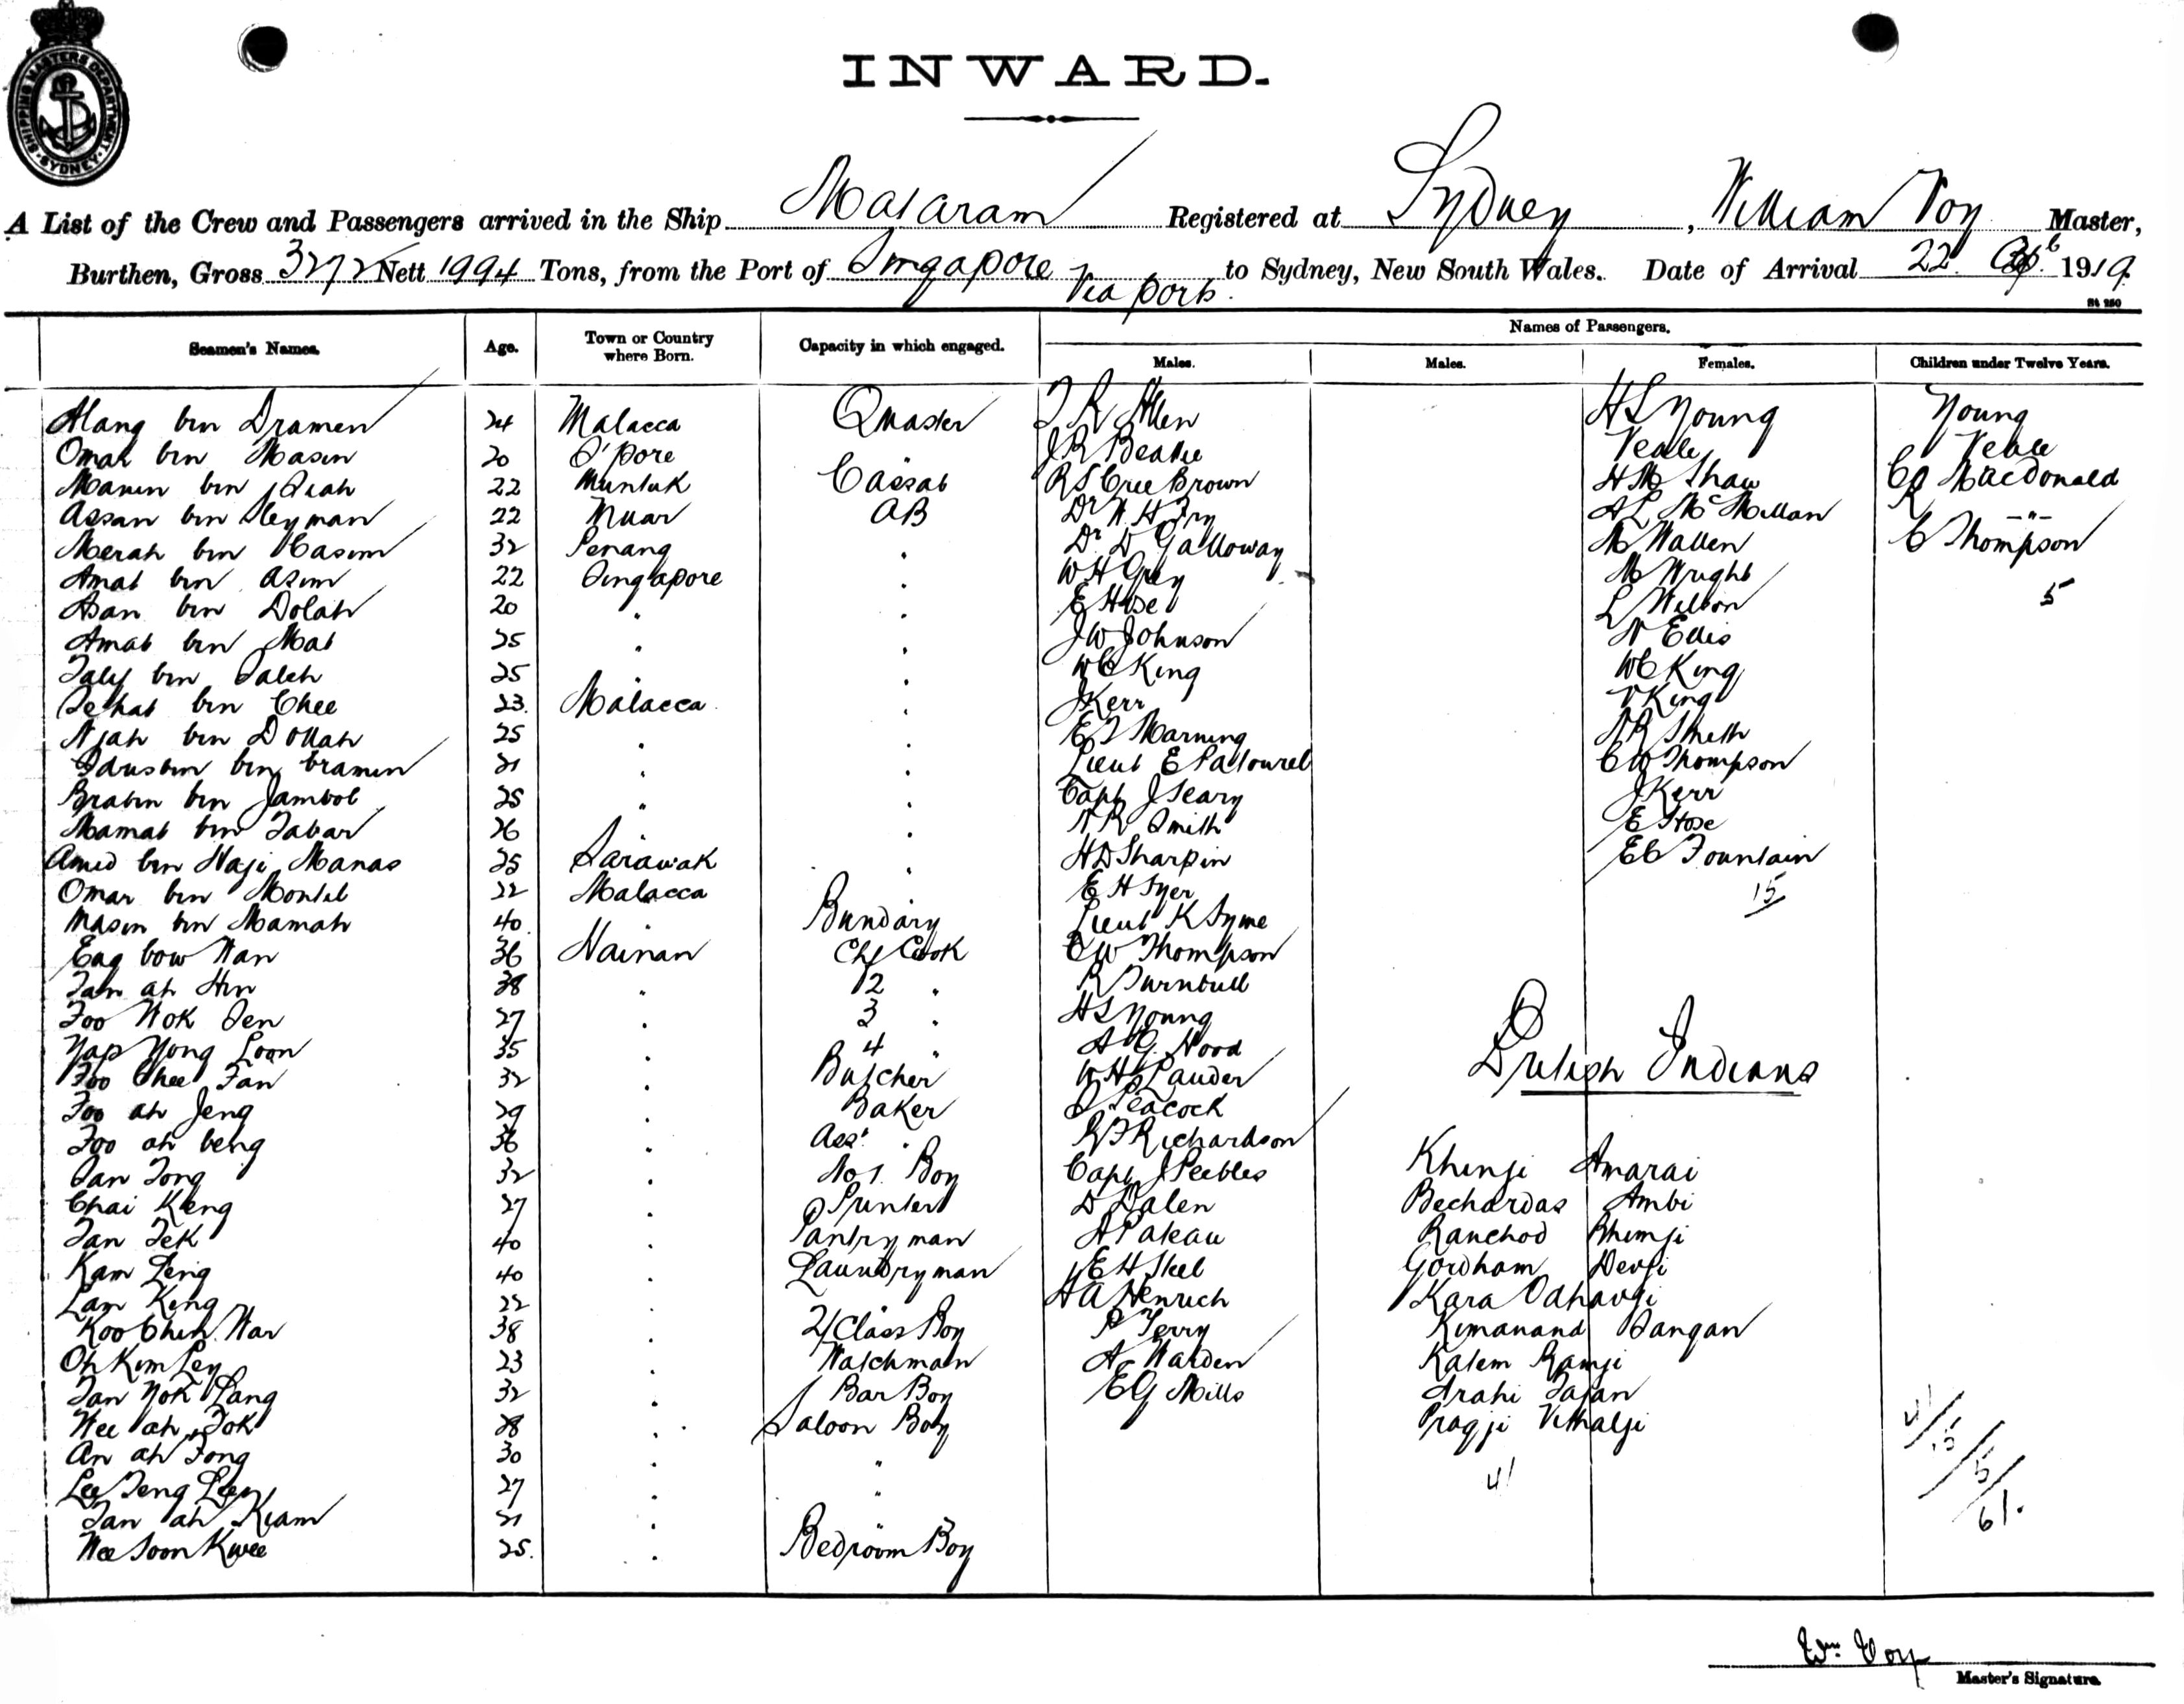 SHIPPING MASTERS DEPARTMENT SYDNEY
INWARD.
A List of the Crew and Passengers arrived in the Ship Mataram Registered at Sydney, William Voy Master,
Burthen, Gross 3272 Nett 1994 Tons, from the Port of Singapore via ports to Sydney, New South Wales. Date of Arrival 22 1919
St 250
Seamen's Names. Age. Town or Country where Born. Capacity in which engaged. Names of Passengers.
Males. Males. Females. Children under Twelve Years.
Alang bin Dramen 24 Malacca Qmaster Allen H S Young Young
Omar bin Masin 20 S'pore " J R Beattie Veale Veale
Manin bin 22 Muntuk Cassab R S Cree Brown H M Shaw MacDonald
Assan bin Sleyman 22 Muar AB Dr W. H. Fry A L McMillan R —"—
Merah bin Casim 32 Penang . Dr D Galloway M Wallen C Thompson
Amat bin Asim 22 Singapore . W H Grey M Wright 5
Asan bin Dolah 20 " . E Hose L Wilson
Amat bin Mat 25 . . J W Johnson N Ellis
bin Saleh 25 . . W C King W C King
bin Chee 23. Malacca . J Kerr V King
Njah bin Dollah 25 . . Marning N R Smith
bin Cramen 21 . . Lieut E C W Thompson
Bratin bin Jambol 25 " . Capt J Seary J Kerr
Mamat bin Jabar 26 . . N R Smith E Hose
Amed bin Haji Manas 25 Sarawak . H D Sharpin E C Fountain
Omar bin Montel 22 Malacca . E H Syer 15
Masin bin Mamah 40. . Bundary Lieut K Syme
Eng bow Wan 36 Hainan Chf Cook C W Thompson
Tan ah Hin 38 " 2 " R Turnbull
Foo Wok Sen 27 . 3 " H S Young
Yap Yong Loon 35 . 4 " A G Wood British Indians
Foo Chee Fan 32 . Butcher W H Lauder
Foo ah Jeng 29 . Baker Peacock
Foo ah beng 36 . Asst " Richardson
Tan Tong 32 . No 1. Boy Capt J Peebles Khinji Amarai
Chai Keng 27 . Printer D Dalen Bechardas Ambi
Tan Tek 40 . Pantryman Ranchod Bhimji
Kam Leng 40 . Laundryman E H Skel Gordham Devji
Lam Keng 22 . " H A Henrich Kara
Koo Chin Wan 38 . 2/Class Boy P Terry Kimanand Dangan
Oh Kim Ley 23 . Watchman A Warden Kalem Ramji
Tan Yok Lang 32 . Bar Boy E G Mills Arahi
Wee ah Tok 28 . Saloon Boy Pragji Vithalji
An ah Fong 30 . " 41
Lee Teng Leen 27 . " 41/15/5/61.
Tan ah Kiam 21 . "
Wee Soon Kwee 25. . Bedroom Boy
Wm Voy
Master's Signature